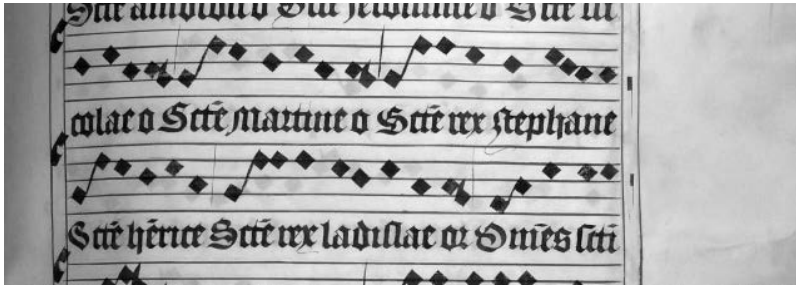 Scte ambrosi o Scte jeronime o Scte ni
colae o Sctē martine o Sctē rex stephane
Sctē hērice Sctē rex ladislae or Omēs scti